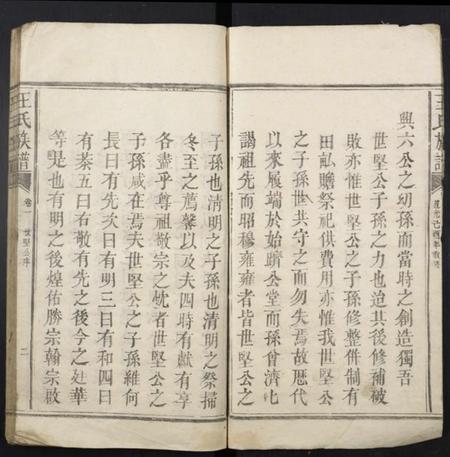 興六公之幼孫而當時之創造獨吾
世堅公子孫之力也迨其後修補被
敗亦惟世堅公之子孫修整併制有
田畆贍祭祀供費用亦惟我世堅公
之子孫世共守之而勿失焉故歷代
以來履端于於始躋公堂而孫曾濟匕
謁祖先而昭穆雍雍者皆世堅公之
子孫也清明之子孫也清明之祭掃
冬至之薦馨以及夫四時有獻有享
各盡乎尊祖敬宗之忱者世堅公之
子孫咸在焉夫世堅公之子孫維何
長曰有先次曰有明三曰有和四曰
有茶五曰有敬有先之後今之廷華
等是也有明之後煌佑勝宗翰宗啟
王氏族譜
卷一
世堅公序
二
王氏族譜